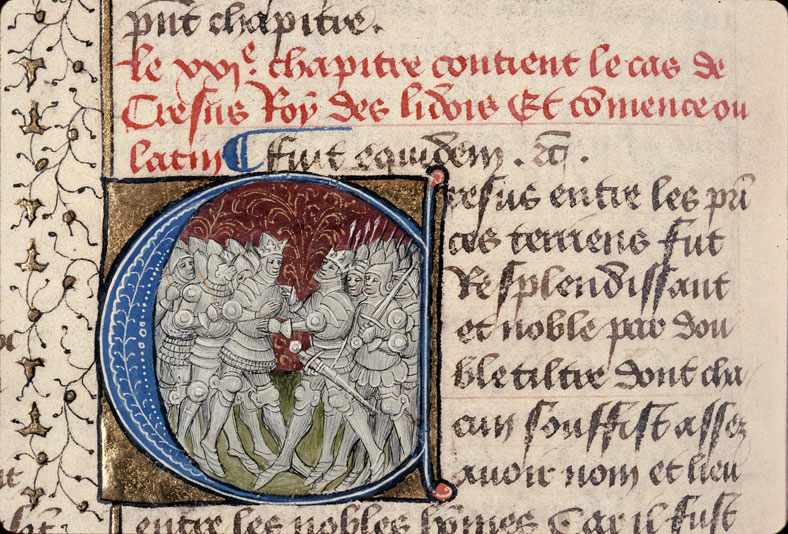 pñt chapitre.
Le xxie. chapitre contient le cas de
Cresus Roy des lidois Et cõmence ou
latin ¶ fuit equidem . &c̃ .
Cresus entre les prĩ
ces terriens fut
Resplendissant
et noble par dou
ble tiltre dont cha
cun souffist assez
auoir nom et lieu
entre les nobles hõmes Car il fust